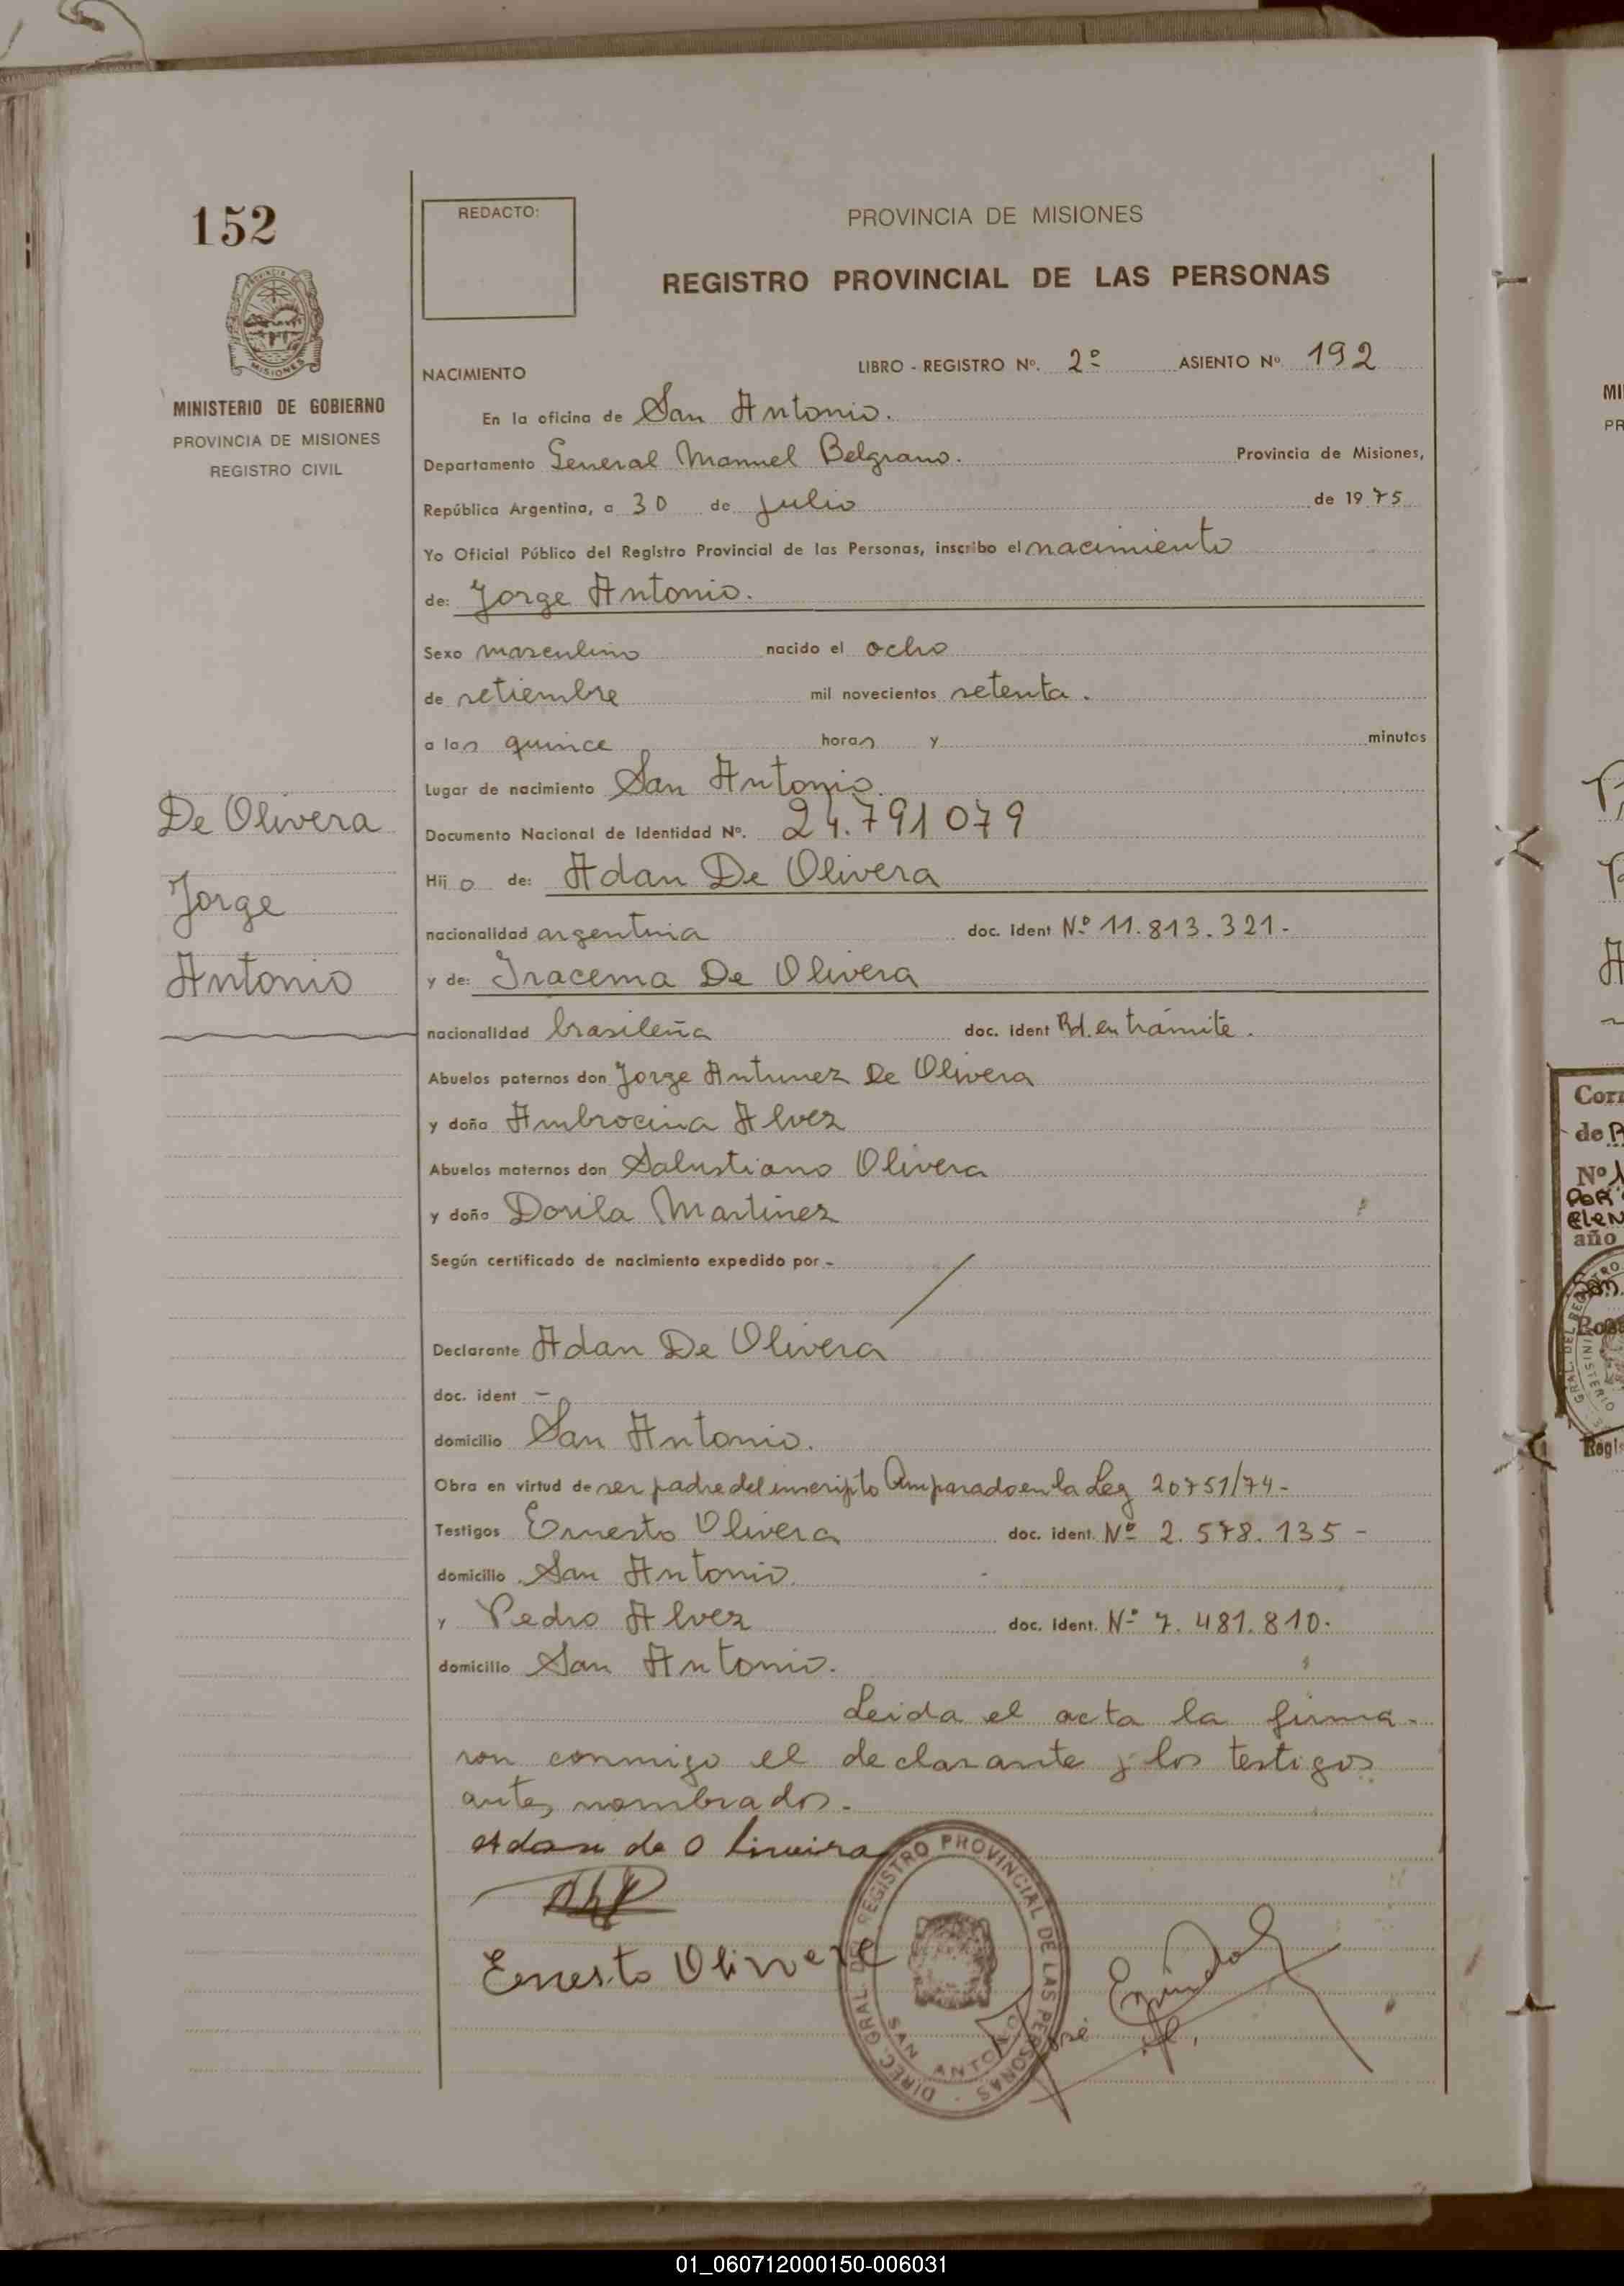 152
REDACTO:
PROVINCIA DE MISIONES
REGISTRO PROVINCIAL DE LAS PERSONAS
PROVINCIA DE
MISIONES
MINISTERIO DE GOBIERNO
PROVINCIA DE MISIONES
REGISTRO CIVIL
NACIMIENTO
LIBRO - REGISTRO Nº. 2º ASIENTO Nº. 192
En la oficina de San Antonio.
Departamento General Manuel Belgrano. Provincia de Misiones,
República Argentina, a 30 de julio de 1975
Yo Oficial Público del Registro Provincial de las Personas, inscribo el nacimiento
de: Jorge Antonio.
Sexo masculino nacido el ocho
de setiembre mil novecientos setenta.
a las quince horas y minutos
Lugar de nacimiento San Antonio.
Documento Nacional de Identidad Nº. 24.791079
Hijo de: Adan De Olivera
nacionalidad argentina doc. Ident Nº 11.813.321-
y de: Iracema De Olivera
nacionalidad brasileña doc. ident Rd. en trámite.
Abuelos paternos don Jorge Antunez De Olivera
y doña Ambrocina Alvez
Abuelos maternos don Salustiano Olivera
y doña Dorila Martinez
Según certificado de nacimiento expedido por -
Declarante Adan De Olivera
doc. ident -
domicilio San Antonio.
Obra en virtud de ser padre del inscripto Amparado en la Ley 20751/74-
Testigos Ernesto Olivera doc. ident. Nº 2.578.135 -
domicilio San Antonio.
y Pedro Alvez doc. Ident. Nº 7.481.810.
domicilio San Antonio.
Leida el acta la firma-
ron conmigo el declarante y los testigos
antes nombrados.
Adan de Oliveira
Ernesto Olivera
DIREC. GRAL. DEL REGISTRO PROVINCIAL DE LAS PERSONAS
SAN ANTONIO
De Olivera
Jorge
Antonio
MI
PR
Corr
de
Nº 1
POR
año
01_060712000150-006031